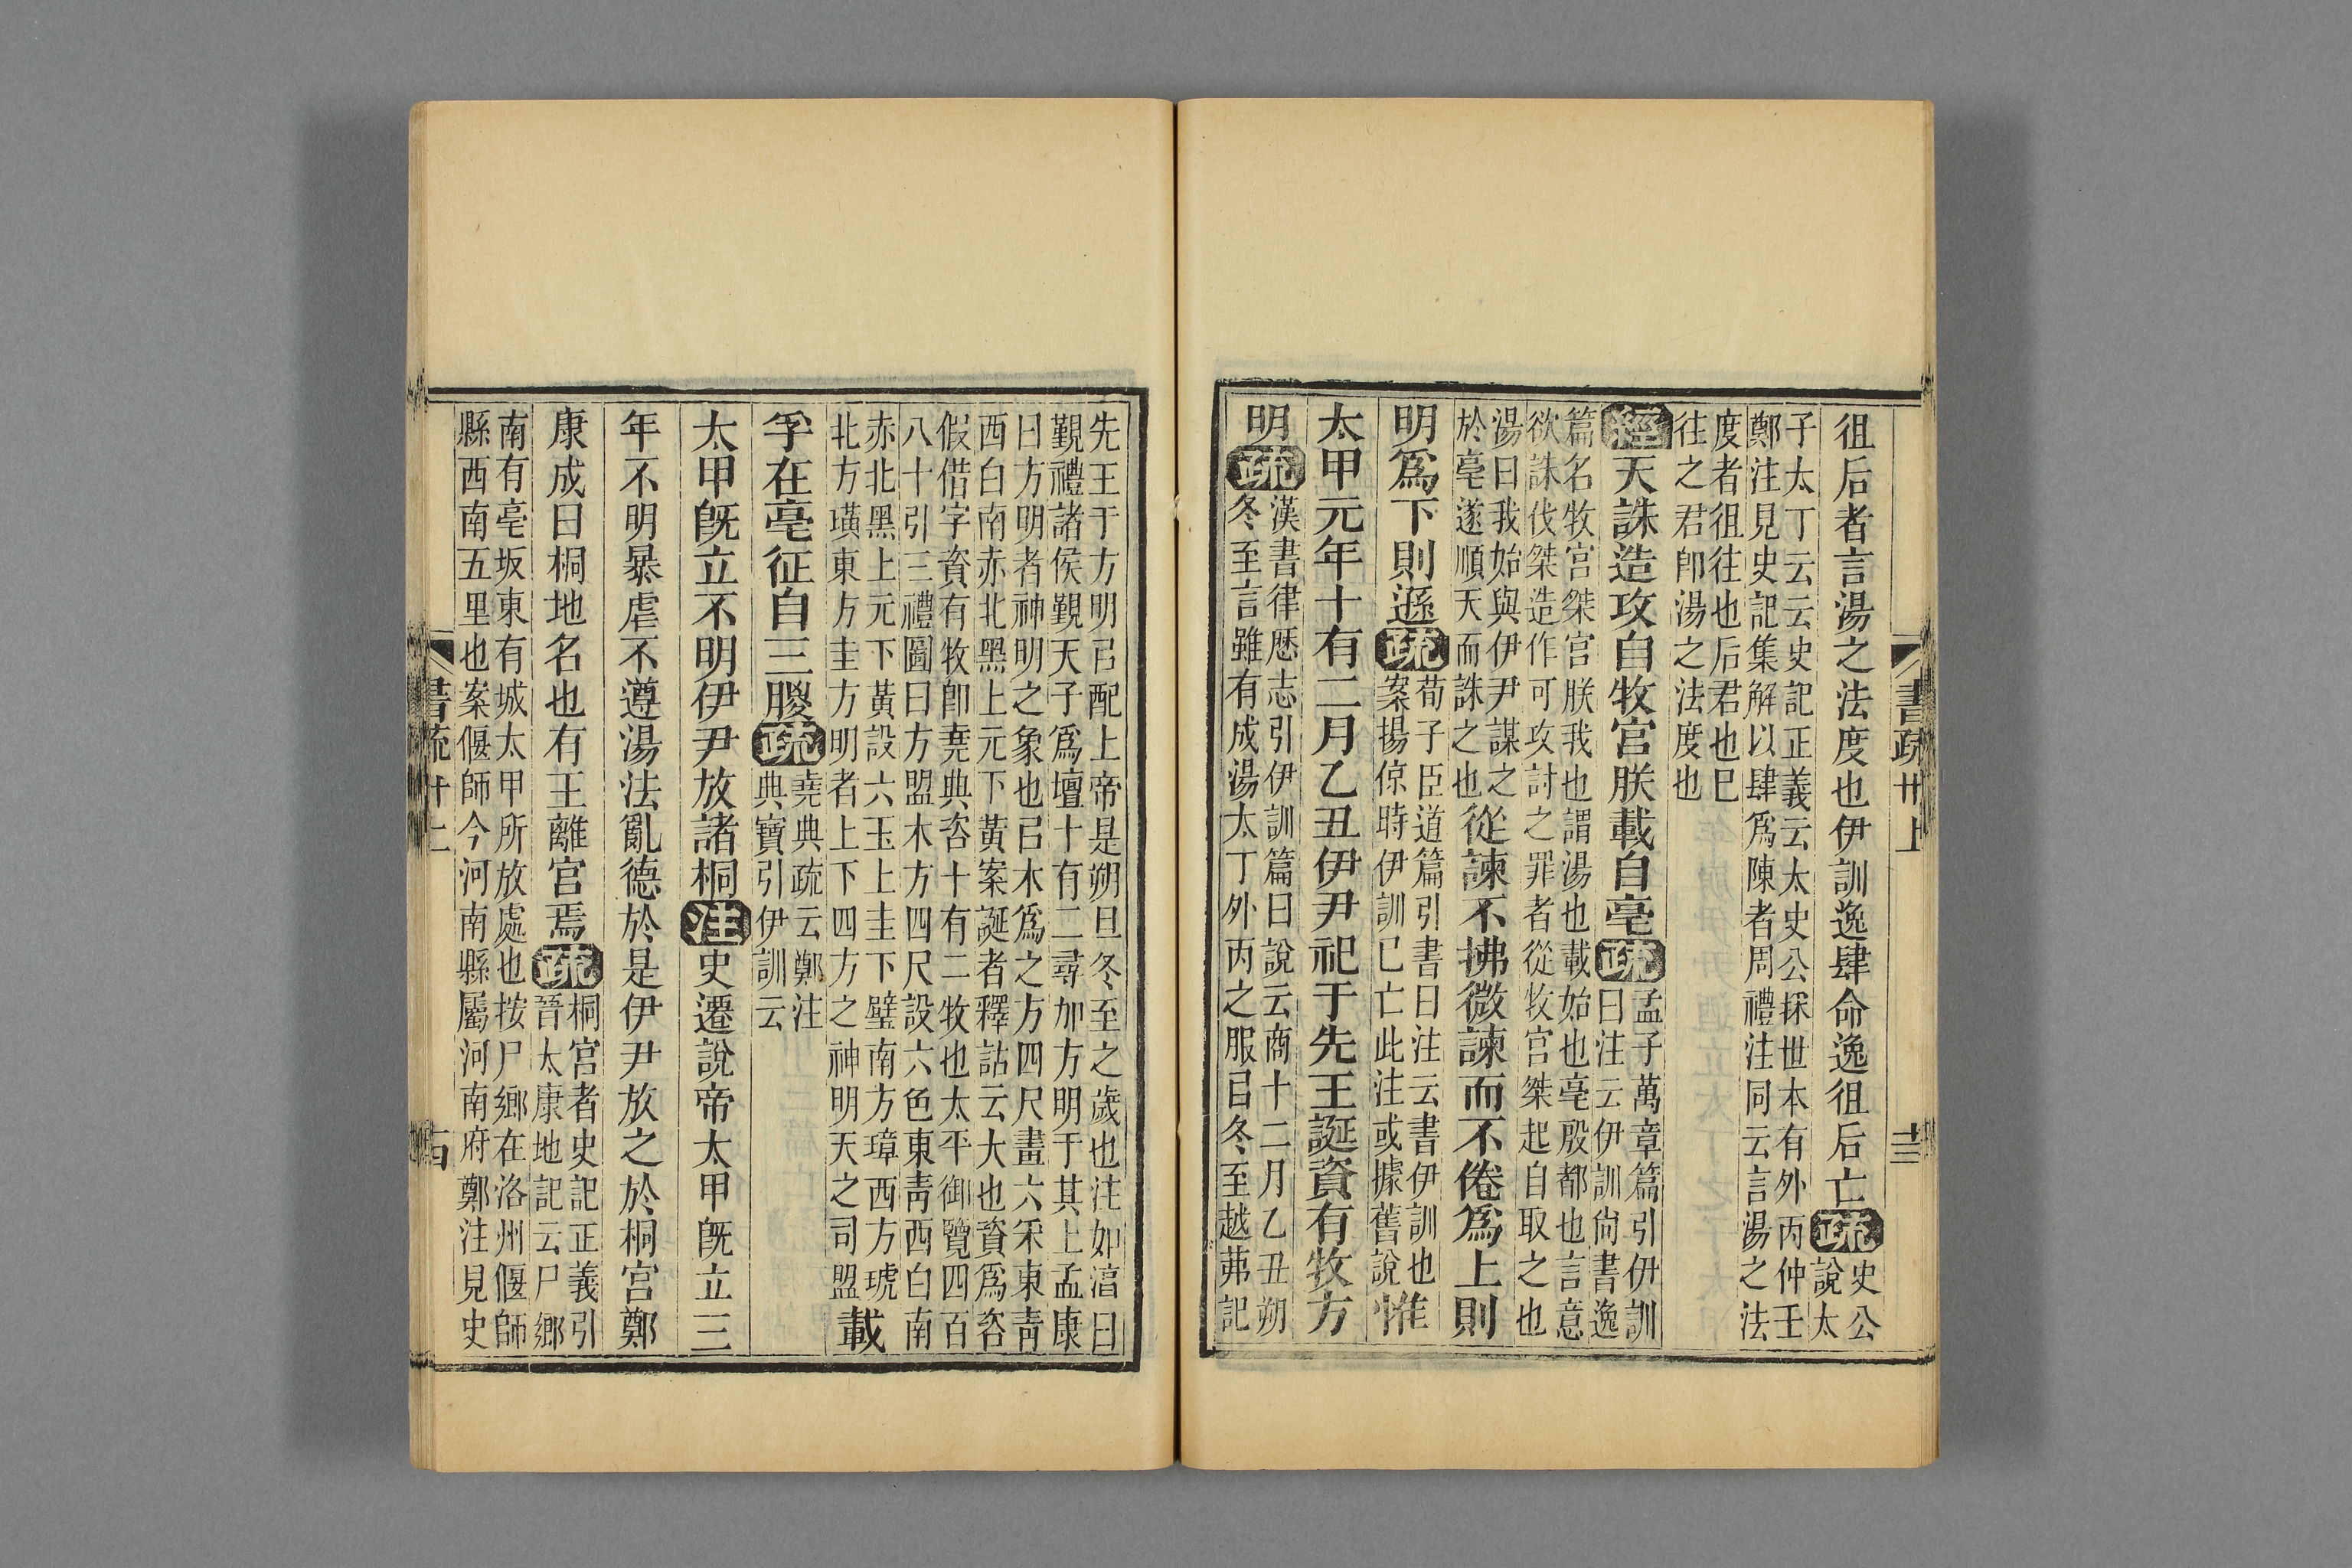 書疏卅上
十三
徂后者言湯之法度也伊訓逸肆命逸徂后亡疏
史公
說太
子太丁云云史記正義云太史公採世本有外丙仲壬
鄭注見史記集解以肆爲陳者周禮注同云言湯之法
度者徂往也后君也巳
往之君卽湯之法度也
經天誅造攻自牧宮朕載自亳疏
孟子萬章篇引伊訓
曰注云伊訓尙書逸
篇名牧宮桀宮朕我也謂湯也載始也亳殷都也言意
欲誅伐桀造作可攻討之罪者從牧宮桀起自取之也
湯曰我始與伊尹謀之
於亳遂順天而誅之也
從諫不拂微諫而不倦爲上則
明爲下則遜疏
荀子臣道篇引書曰注云書伊訓也
案揚倞時伊訓已亡此注或據舊說
惟
太甲元年十有二月乙丑伊尹祀于先王誕資有牧方
明疏
漢書律厤志引伊訓篇曰說云商十二月乙丑朔
冬至言雖有成湯太丁外丙之服㠯冬至越茀記
先王于方明㠯配上帝是朔旦冬至之歲也注如湻曰
覲禮諸侯覲天子爲壇十有二尋加方明于其上孟康
曰方明者神明之象也㠯木爲之方四尺畫六采東靑
西白南赤北黑上元下黃案誕者釋詁云大也資爲咨
假借字資有牧卽堯典咨十有二牧也太平御覽四百
八十引三禮圖曰方盟木方四尺設六色東靑西白南
赤北黑上元下黃設六玉上圭下璧南方璋西方琥
北方璜東方圭方明者上下四方之神明天之司盟
載
孚在亳征自三朡疏
堯典疏云鄭注
典寶引伊訓云
太甲旣立不明伊尹放諸桐注史遷說帝太甲旣立三
年不明暴虐不遵湯法亂德於是伊尹放之於桐宮鄭
康成曰桐地名也有王離宮焉疏
桐宮者史記正義引
晉太康地記云尸鄉
南有亳坂東有城太甲所放處也按尸鄉在洛州偃師
縣西南五里也案偃師今河南縣屬河南府鄭注見史
書疏卅上
十四